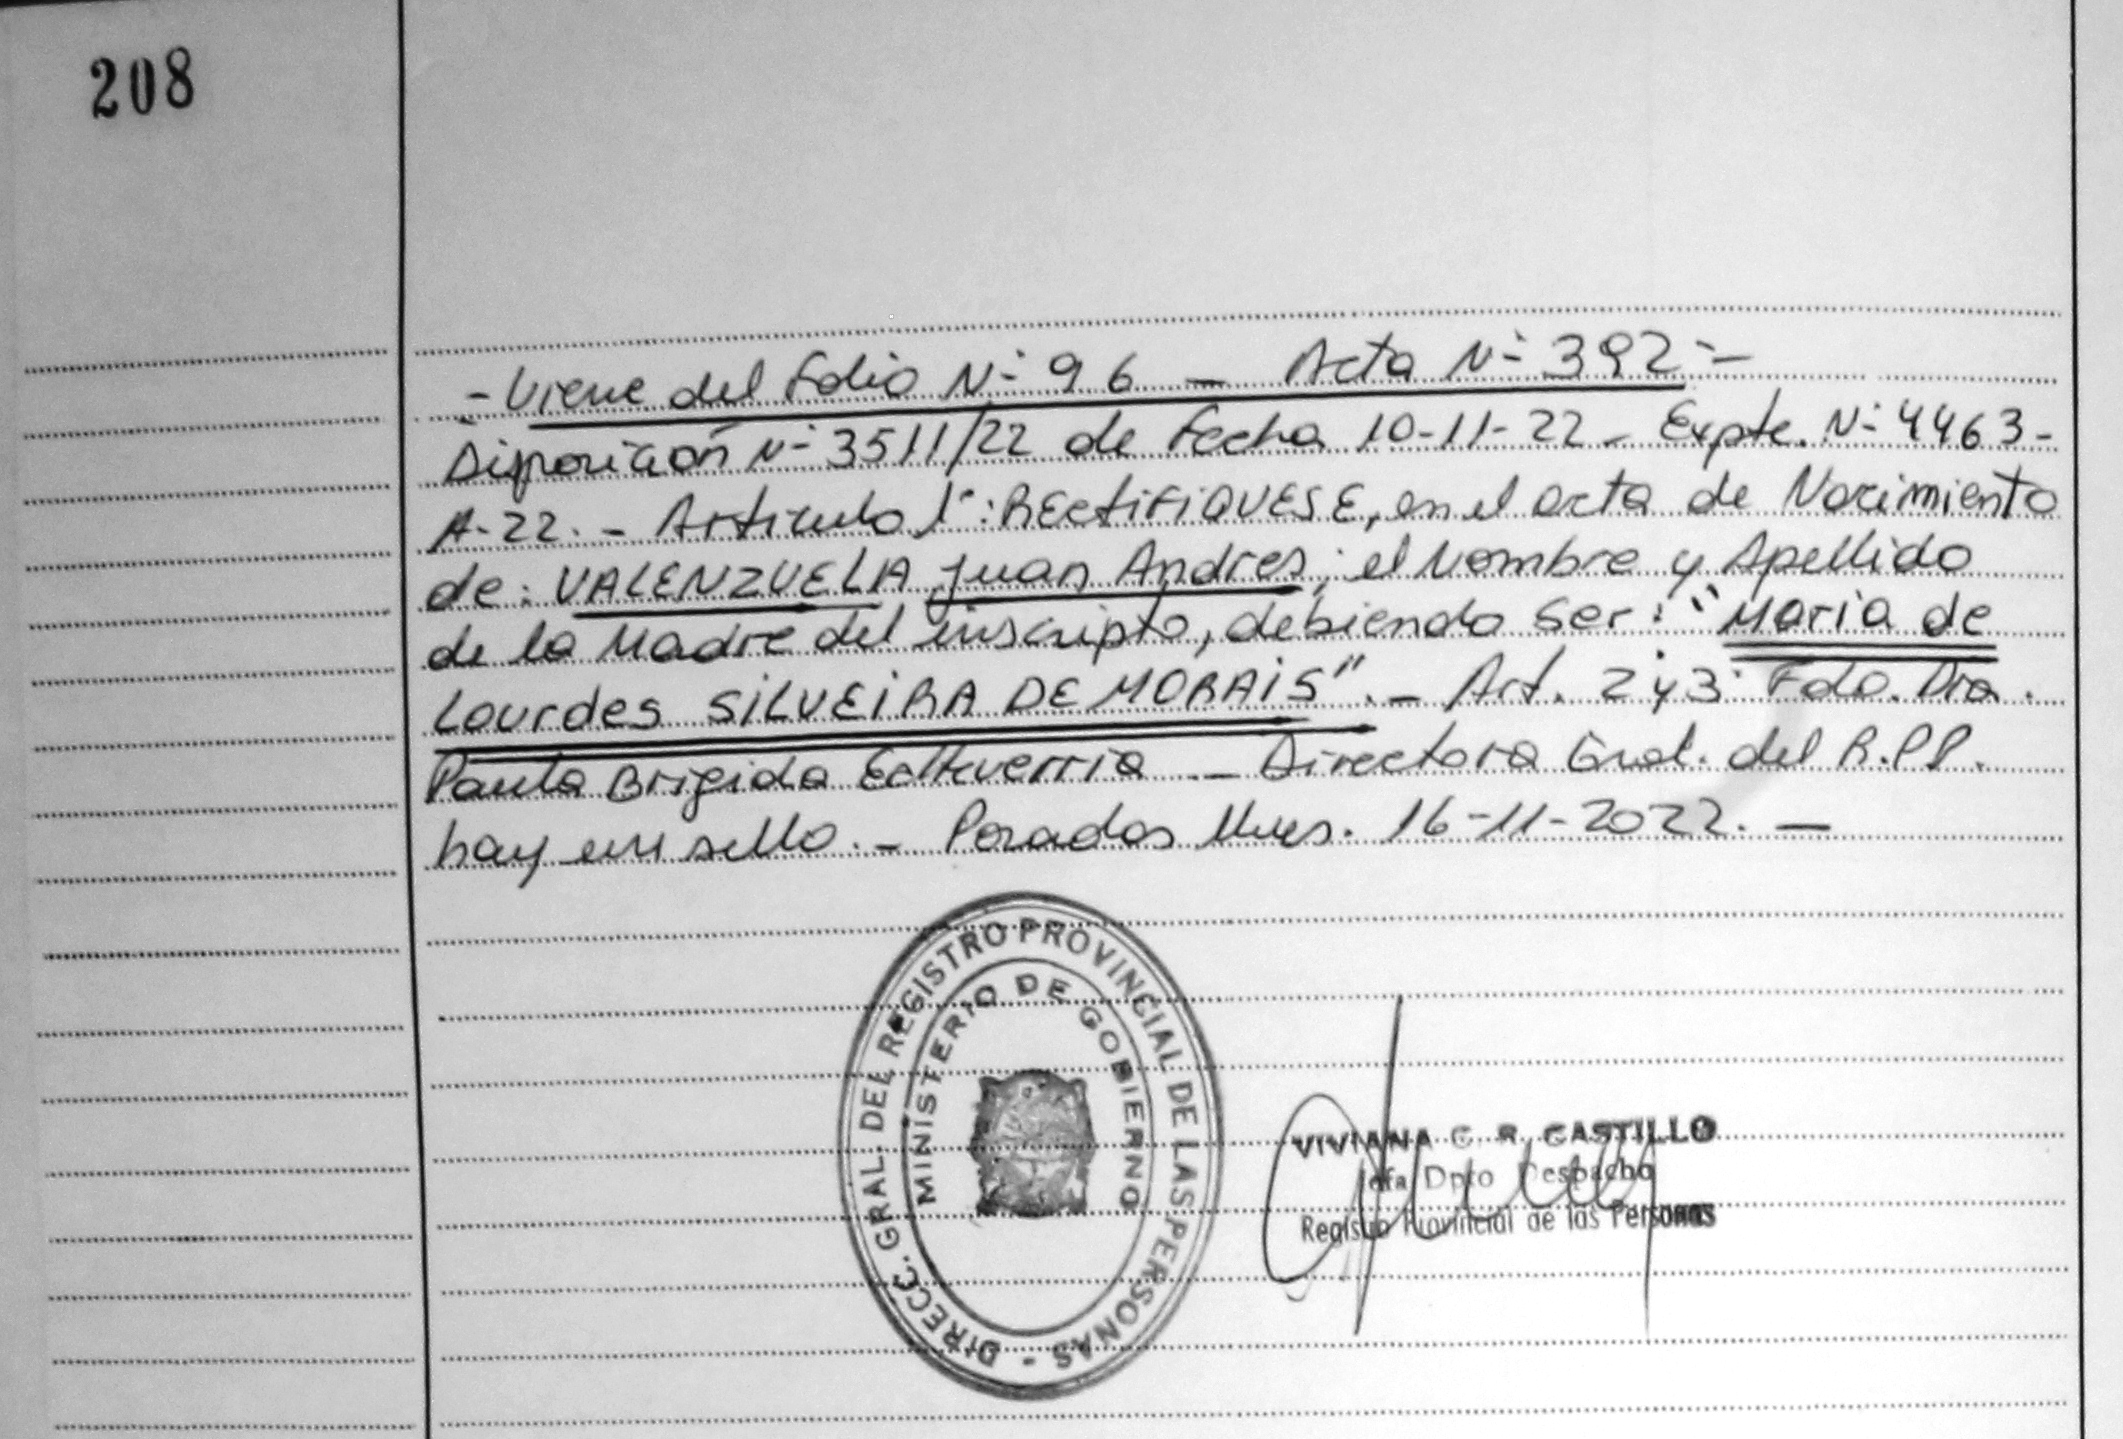 208
- Viene del Folio N° 96 - Acta N° 392 -
Disposición N° 3511/22 de Fecha 10-11-22 - Expte. N° 4463-
A-22. - Articulo 1°: RECtiFiQUESE, en el acta de Nacimiento
de: VALENZUELA Juan Andres; el Nombre y Apellido
de la Madre del inscripto, debiendo ser: "Maria de
Lourdes SiLVEiRA DE MORAiS". - Art. 2 y 3 Fdo. Dra.
Paula Brigida Echeverria - Directora Gral. del R.P.P.
hay un sello. - Posadas Mnes. 16-11-2022. -
DIRECC. GRAL. DEL REGISTRO PROVINCIAL DE LAS PERSONAS -
MINISTERIO DE GOBIERNO
VIVIANA C. R. CASTILLO
Jefa Dpto Despacho
Registro Provincial de las Personas